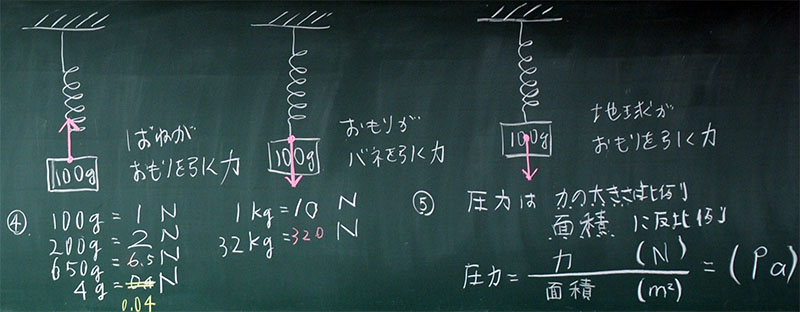 100g
ばねが
おもりを引く力
100g
おもりが
バネを引く力
100g
地球が
おもりを引く力
④
100g = 1 N
200g = 2 N
650g = 6.5 N
4g = N
0.04
1kg = 10 N
32kg = 320 N
⑤
圧力は 力の大きさに比例
面積 に反比例
圧力 = 力 (N) / 面積 (m²) = (Pa)